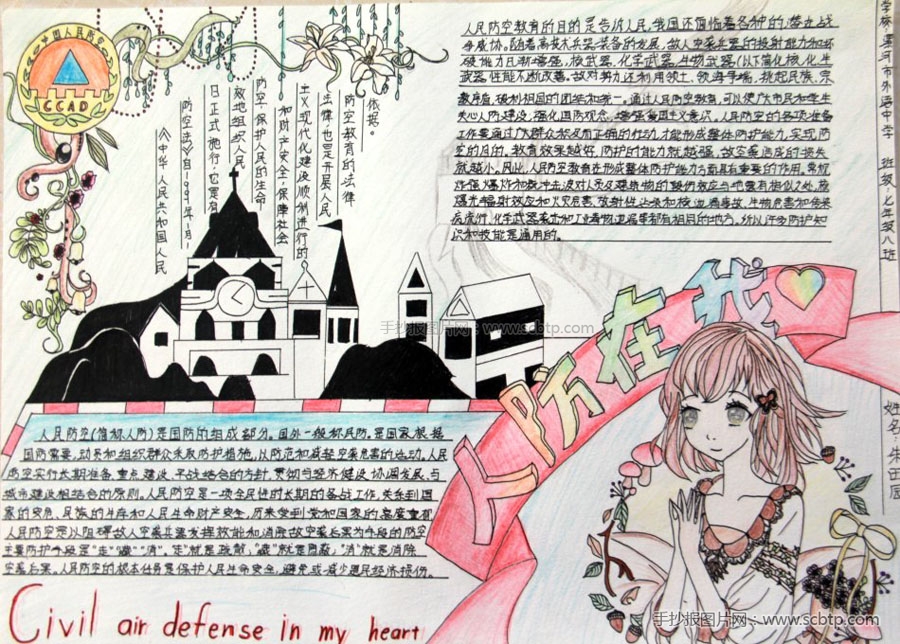 中国人民防空
CCAD
《中华人民共和国人民
防空法》自1997年1月1
日正式施行，它是有
效地组织人民
防空，保护人民的生命
和财产安全，保障社会
主义现代化建设顺利进行的
法律，也是开展人民
防空教育的法律
依据。
人民防空教育的目的是告诉人民，我国还面临着各种的潜在战
争威胁。随着高技术兵器装备的发展，敌人空袭兵器的投射能力和破
坏能力日渐增强，核武器，化学武器，生物武器（以下简化核化生
武器）性能不断改善。敌对势力还利用领土、领海争端，挑起民族、宗
教矛盾，破坏祖国的团结和统一。通过人民防空教育，可以使广大市民和学生
关心人防建设，强化国防观念，增强爱国主义意识。人民防空的各项准备
工作要通过广大群众积极而正确的行动，才能形成整体防护能力，实现防
空的目的。教育效果越好，防护的能力就越强，敌空袭造成的损失
就越小。因此，人民防空教育在形成整体防护能力方面具有重要的作用。常规
炸弹爆炸和核冲击波对人员及建筑物的毁伤效应与地震有相似之处，核
爆光辐射效应和火灾危害，放射性沾染和核泄漏事故，生物危害和传染
病流行，化学武器袭击和工业毒物泄漏等都有相同的地方。所以许多防护知
识和技能是通用的。
学校：漯河市外语中学 班级：七年级八班
手抄报图片网：www.scbtp.com
人防在我
人民防空（简称人防）是国防的组成部分。国外一般称民防。是国家根据
国防需要，动员和组织群众采取防护措施，以防范和减轻空袭危害的活动。人民
防空实行长期准备、重点建设、平战结合的方针，贯彻与经济建设协调发展、与
城市建设相结合的原则。人民防空是一项全民性的长期的备战工作，关系到国
家的安危，民族的生存和人民生命财产安全，历来受到党和国家的高度重视
人民防空是以阻碍敌人空袭兵器发挥效能和消除敌空袭后果为手段的防空
主要防护手段是“走”“藏”“消”，“走”就是疏散，“藏”就是隐蔽，“消”就是消除
空袭后果。人民防空的根本任务是保护人民生命安全，避免或减少国民经济损伤。
姓名：朱
Civil air defense in my heart
手抄报图片网：www.scbtp.com